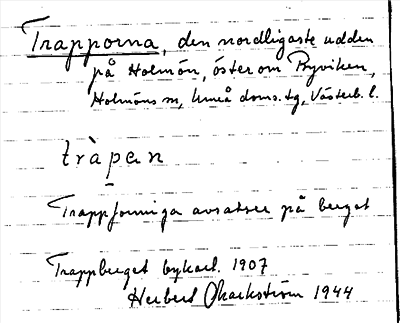 Trapporna, den nordligaste udden
på Holmön, öster om Byviken,
Holmöns sn, Umeå doms. tg, Västerb. l.
tràpan
Trappformiga avsatser på berget
Trappberget bykart. 1907
Herbert Markström 1944